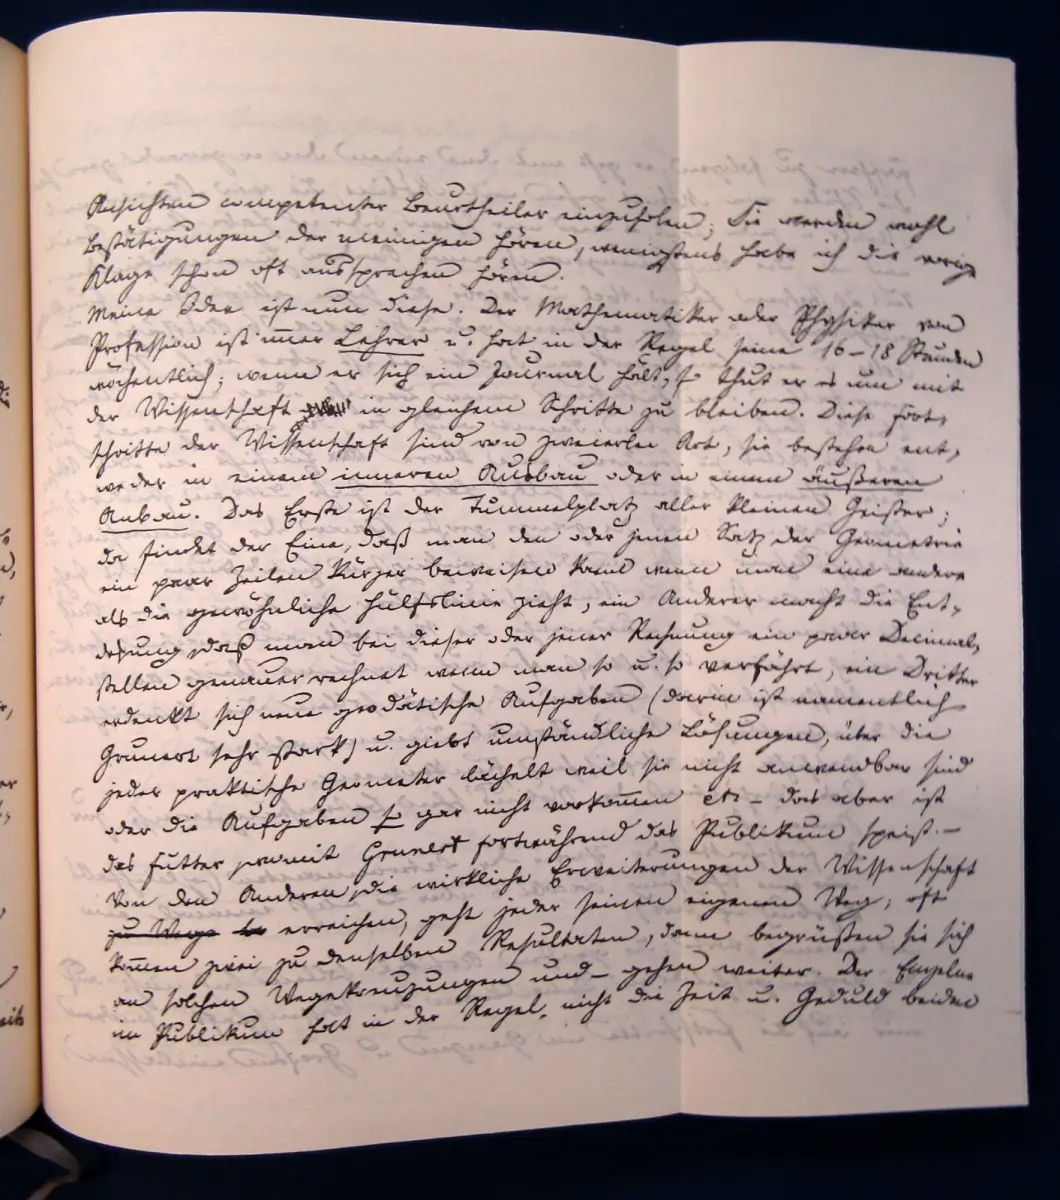 Ansichten competenter Beurtheiler einzuholen; Sie werden wohl
Bestätigungen der meinigen hören, wenigstens habe ich die vorige
Klage schon oft aussprechen hören.
Meine Idee ist nun diese. Der Mathematiker oder Physiker von
Profession ist immer Lehrer u. hat in der Regel seine 16–18 Stunden
wöchentlich; wenn er sich ein Journal hält, so thut er es um mit
der Wissenschaft in gleichem Schritte zu bleiben. Diese Fort-
schritte der Wissenschaft sind von zweierlei Art, sie bestehen ent-
weder in einem inneren Ausbau oder in einem äußeren
Anbau. Das Erste ist der Tummelplatz aller kleinen Geister;
da findet der Eine, daß man den oder jenen Satz der Geometrie
ein paar Zeilen kürzer beweisen kann wenn man eine andere
als die gewöhnliche Hülfslinie zieht, ein Anderer macht die Ent-
deckung, daß man bei dieser oder jener Rechnung ein paar Decimal-
stellen genauer rechnet wenn man so u. so verfährt, ein Dritter
erdenkt sich neue geodätische Aufgaben (darin ist namentlich
Grunert sehr stark) u. giebt umständliche Lösungen, über die
jeder praktische Geometer lächelt weil sie nicht anwendbar sind
oder die Aufgaben so gar nicht vorkommen etc – das aber ist
das Futter womit Grunert fortwährend das Publikum speist. –
Von den Anderen, die wirkliche Erweiterungen der Wissenschaft
zu Wege erreichen, geht jeder seinen eigenen Weg; oft
kommen zwei zu denselben Resultaten, dann begrüßen sie sich
an solchen Wegekreuzungen und – gehen weiter. Der Einzelne
im Publikum hat in der Regel nicht die Zeit u. Geduld beiden